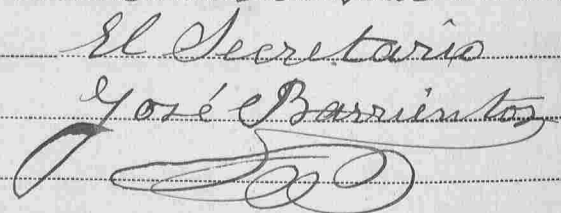 El Secretario
José Barrientos